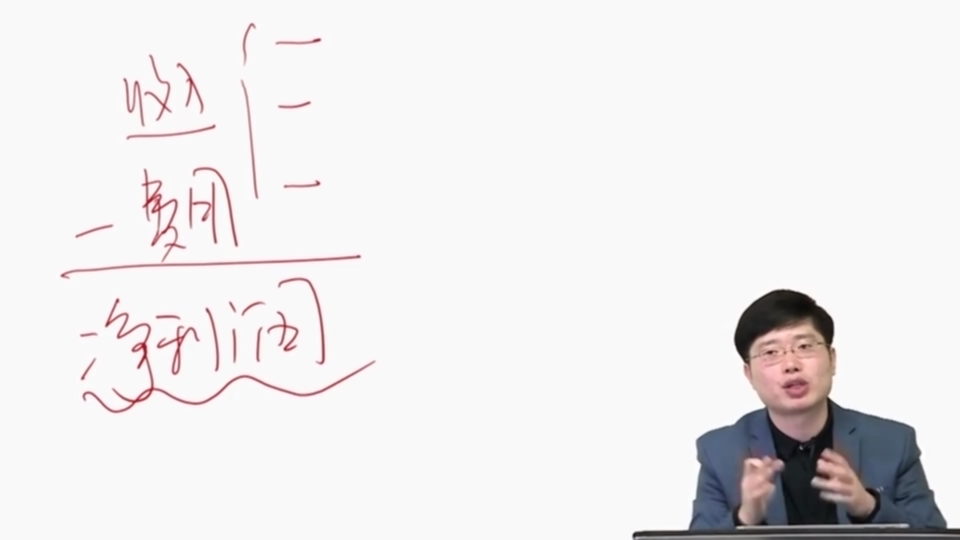 收入
- 费用
净利润